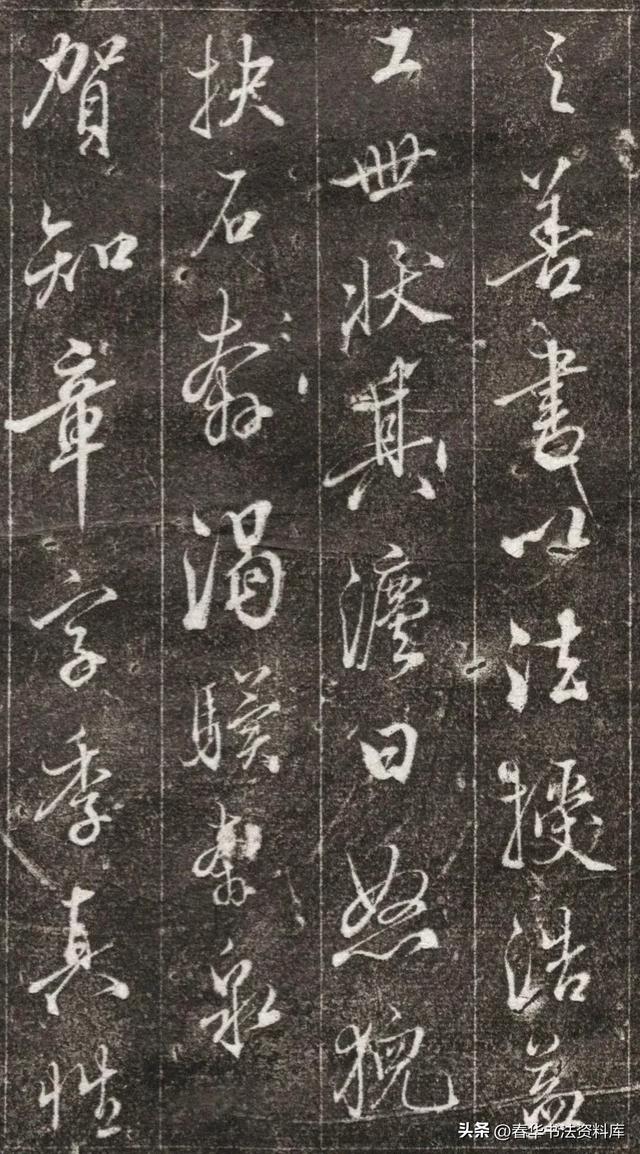 之善書以法授浩益
工世狀其灋曰怒猊
抉石奔渴驥奔泉
賀知章字季真性
头条 @春华书法资料库